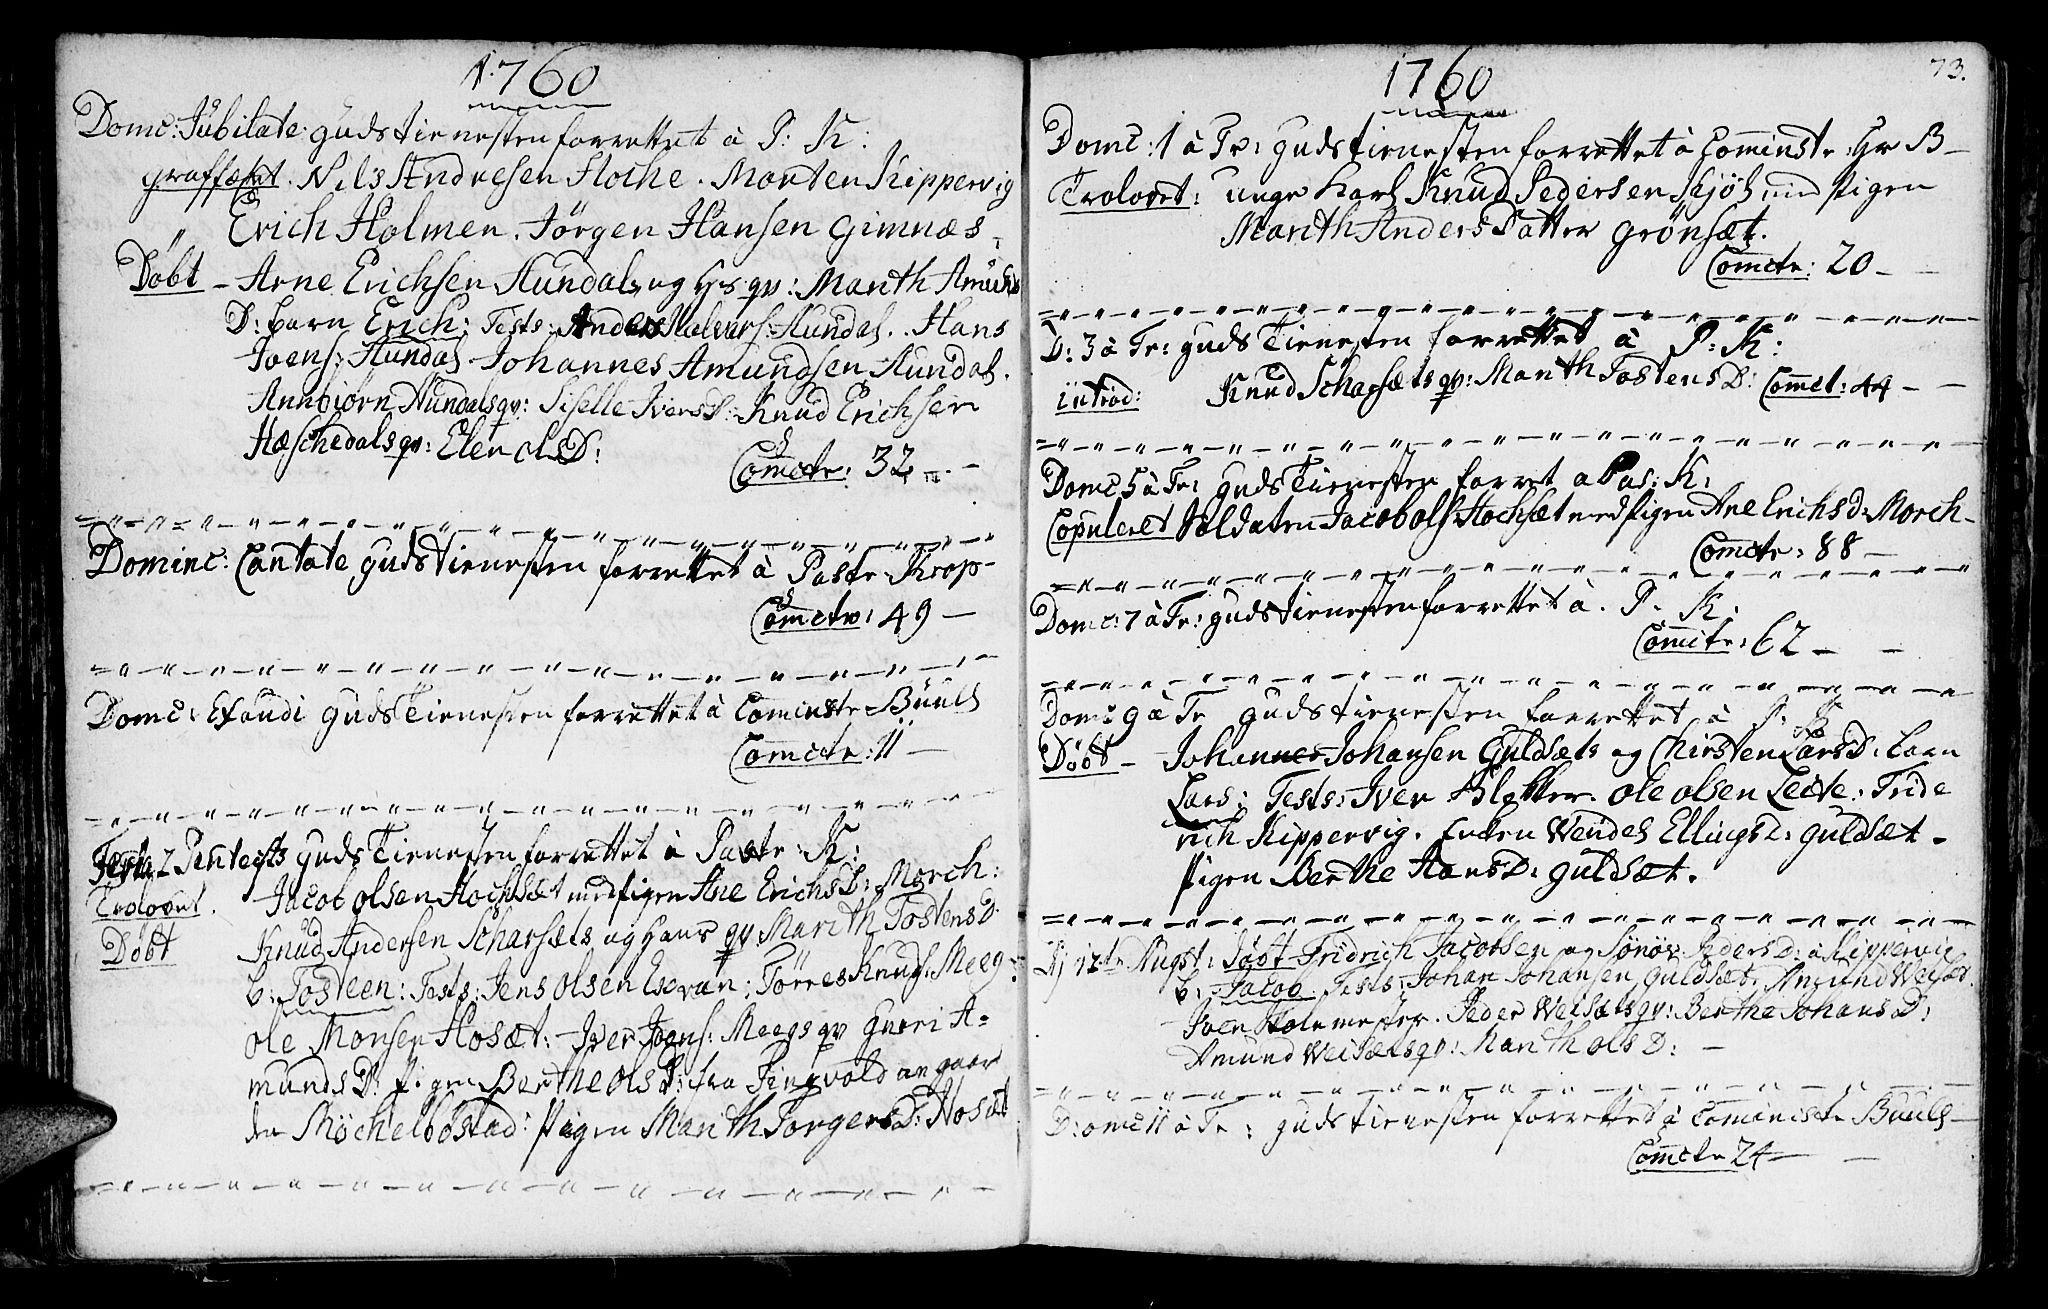 1760
Domc: Jubilate gudstienesten forrettet à P: K:
graffæst. Nils Andresen Floche. Morten Kippervig
Erich Holmen. Jörgen Hansen Gimnæs
Döbt - Arne Erichsen Aundals og Hs qv: Marith Amunds
D: barn Erich: Tests: Anders Halvars: Aundal. Hans
Joens: Aundal Johannes Amundsen Aundal.
Annbiörn Aundals qv: Siselle IversD: Knud Erichsen
Hæschedals qv: Elen OlsD:
Comctr: 32.
Dominc: Cantate gudsTienesten forrettet à Paste Krop-
Comctr: 49 -
Domc: Exaudi gudsTienesten forrettet à Cominste Buuls
Comctr: 11 -
Festa 2 Pentecsts gudsTienesten forrettet à Paste: K:
Trolovet. Jacob Olsen Hochsæt med pigen Ane ErichsD: Morch:
Döbt Knud Andersen Scharsæts og Hans qv Marith TostensD
b: Tosteen: Tests: Jens Olsen Törres Knuds: Meeg
Ole Monsen Hosæt: Iver Joens: Meegs qv Gueri A=
mundsD: pigen Berthe OlsD: fra Tingvold angaar
den Möchelbostad: Pigen Marith TorgersD: Hosæt
1760
73.
Domc: 1 à Tr: gudstienesten forrettet à Cominste: Hr B-
Trolovet: unge Karl Knud Pedersen Skjöl med pigen
Marith Anders Datter grönsæt.
Comctr: 20 -
D: 3 à Tr: guds Tienesten forrettet à P: K:
introd: Knud Scharsæts qv: Marith TostensD: Comct: 44 -
Domc 5 à Tr: guds Tienesten forret a Pas: K:
Copuleret Soldaten Jacob Ols: Hochsæt med pigen Ane ErichsD: Morch-
Comctr: 88 -
Domc: 7 à Tr: gudstienesten forrettet à. P. K.
Comctr: 62 -
Domc 9 à Tr gudstienesten forrettet à P: K
Döbt - Johannes Johansen Guldsæts og Chirsten LarsD: barn
Lars: Tests: Iver Bletker. Ole Olsen Leite: Fride
rich Kippervig. Enken Wendel EllingsD: guldsæt -
Pigen Berthe HansD: guldsæt.
12te Augst: döbt Fridrich Jacobsen og Sönör PedersD: à Kippervig
b: Jacob Tests: Johan Johansen guldsæt. Amund Weisæt.
Joen Peder Weisæts qv: Berthe JohansD:
Amund Weisæts qv: Marith OlsD: -
D:omc 11 à Tr: gudstienesten forrettet à Coministe Buuls -
Comctr 24 -